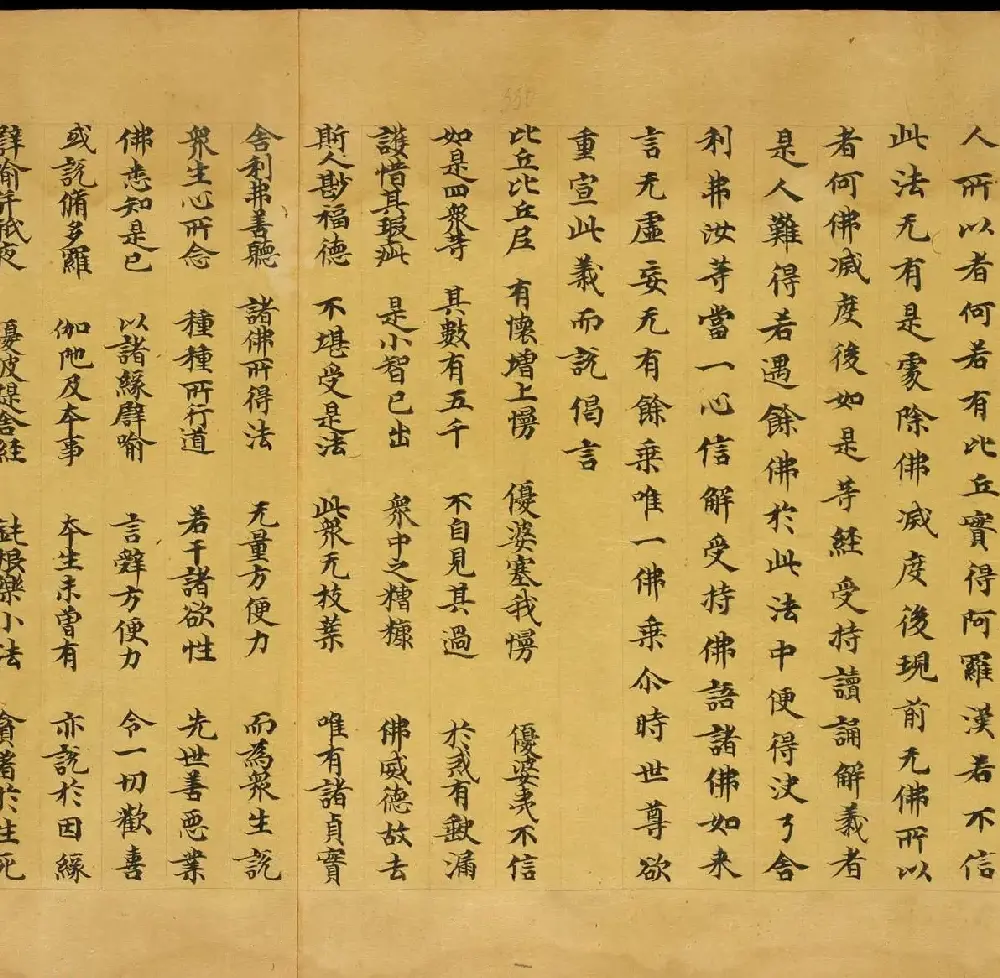 人所以者何若有比丘實得阿羅漢若不信
此法无有是處除佛滅度後現前无佛所以
者何佛滅度後如是等經受持讀誦解義者
是人難得若遇餘佛於此法中便得決了舍
利弗汝等當一心信解受持佛語諸佛如来
言无虛妄无有餘乘唯一佛乘尒時世尊欲
重宣此義而說偈言
比丘比丘尼 有懷增上慢 優婆塞我慢 優婆夷不信
如是四衆等 其數有五千 不自見其過 於戒有缺漏
護惜其瑕疵 是小智已出 衆中之糟糠 佛威德故去
斯人尠福德 不堪受是法 此衆无枝葉 唯有諸貞實
舍利弗善聽 諸佛所得法 无量方便力 而為衆生說
衆生心所念 種種所行道 若干諸欲性 先世善惡業
佛悉知是已 以諸緣譬喻 言辭方便力 令一切歡喜
或說脩多羅 伽陁及本事 本生未曾有 亦說於因緣
譬喻并祇夜 優波提舍經 鈍根樂小法 貪著於生死